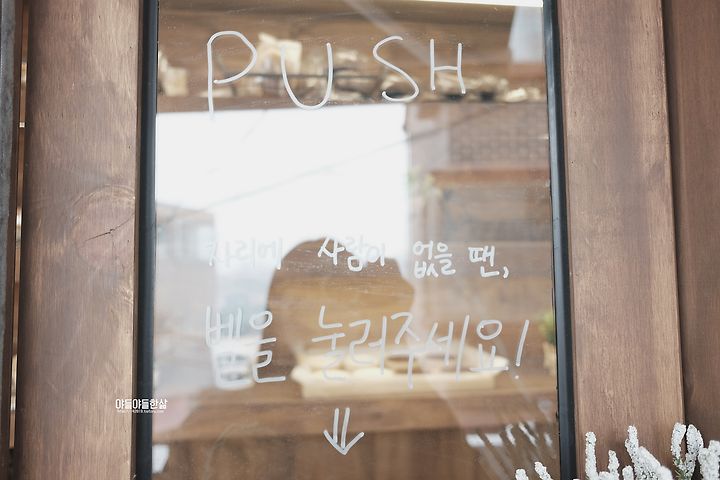 PUSH
자리에 사람이 없을 땐,
벨을 눌러주세요!
야들야들한살